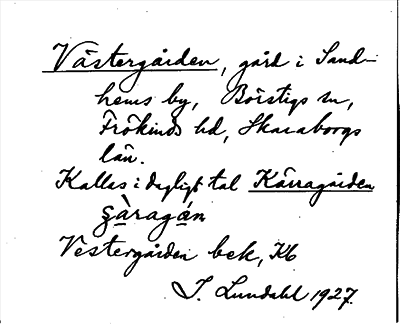 Västergården, gård i Sand-
hems by, Börstigs sn,
Frökinds hd, Skaraborgs
län.
Kallas i dagligt tal Kärragården
ꞔàragán
Vestergården bek, Kb
I. Lundahl 1927.